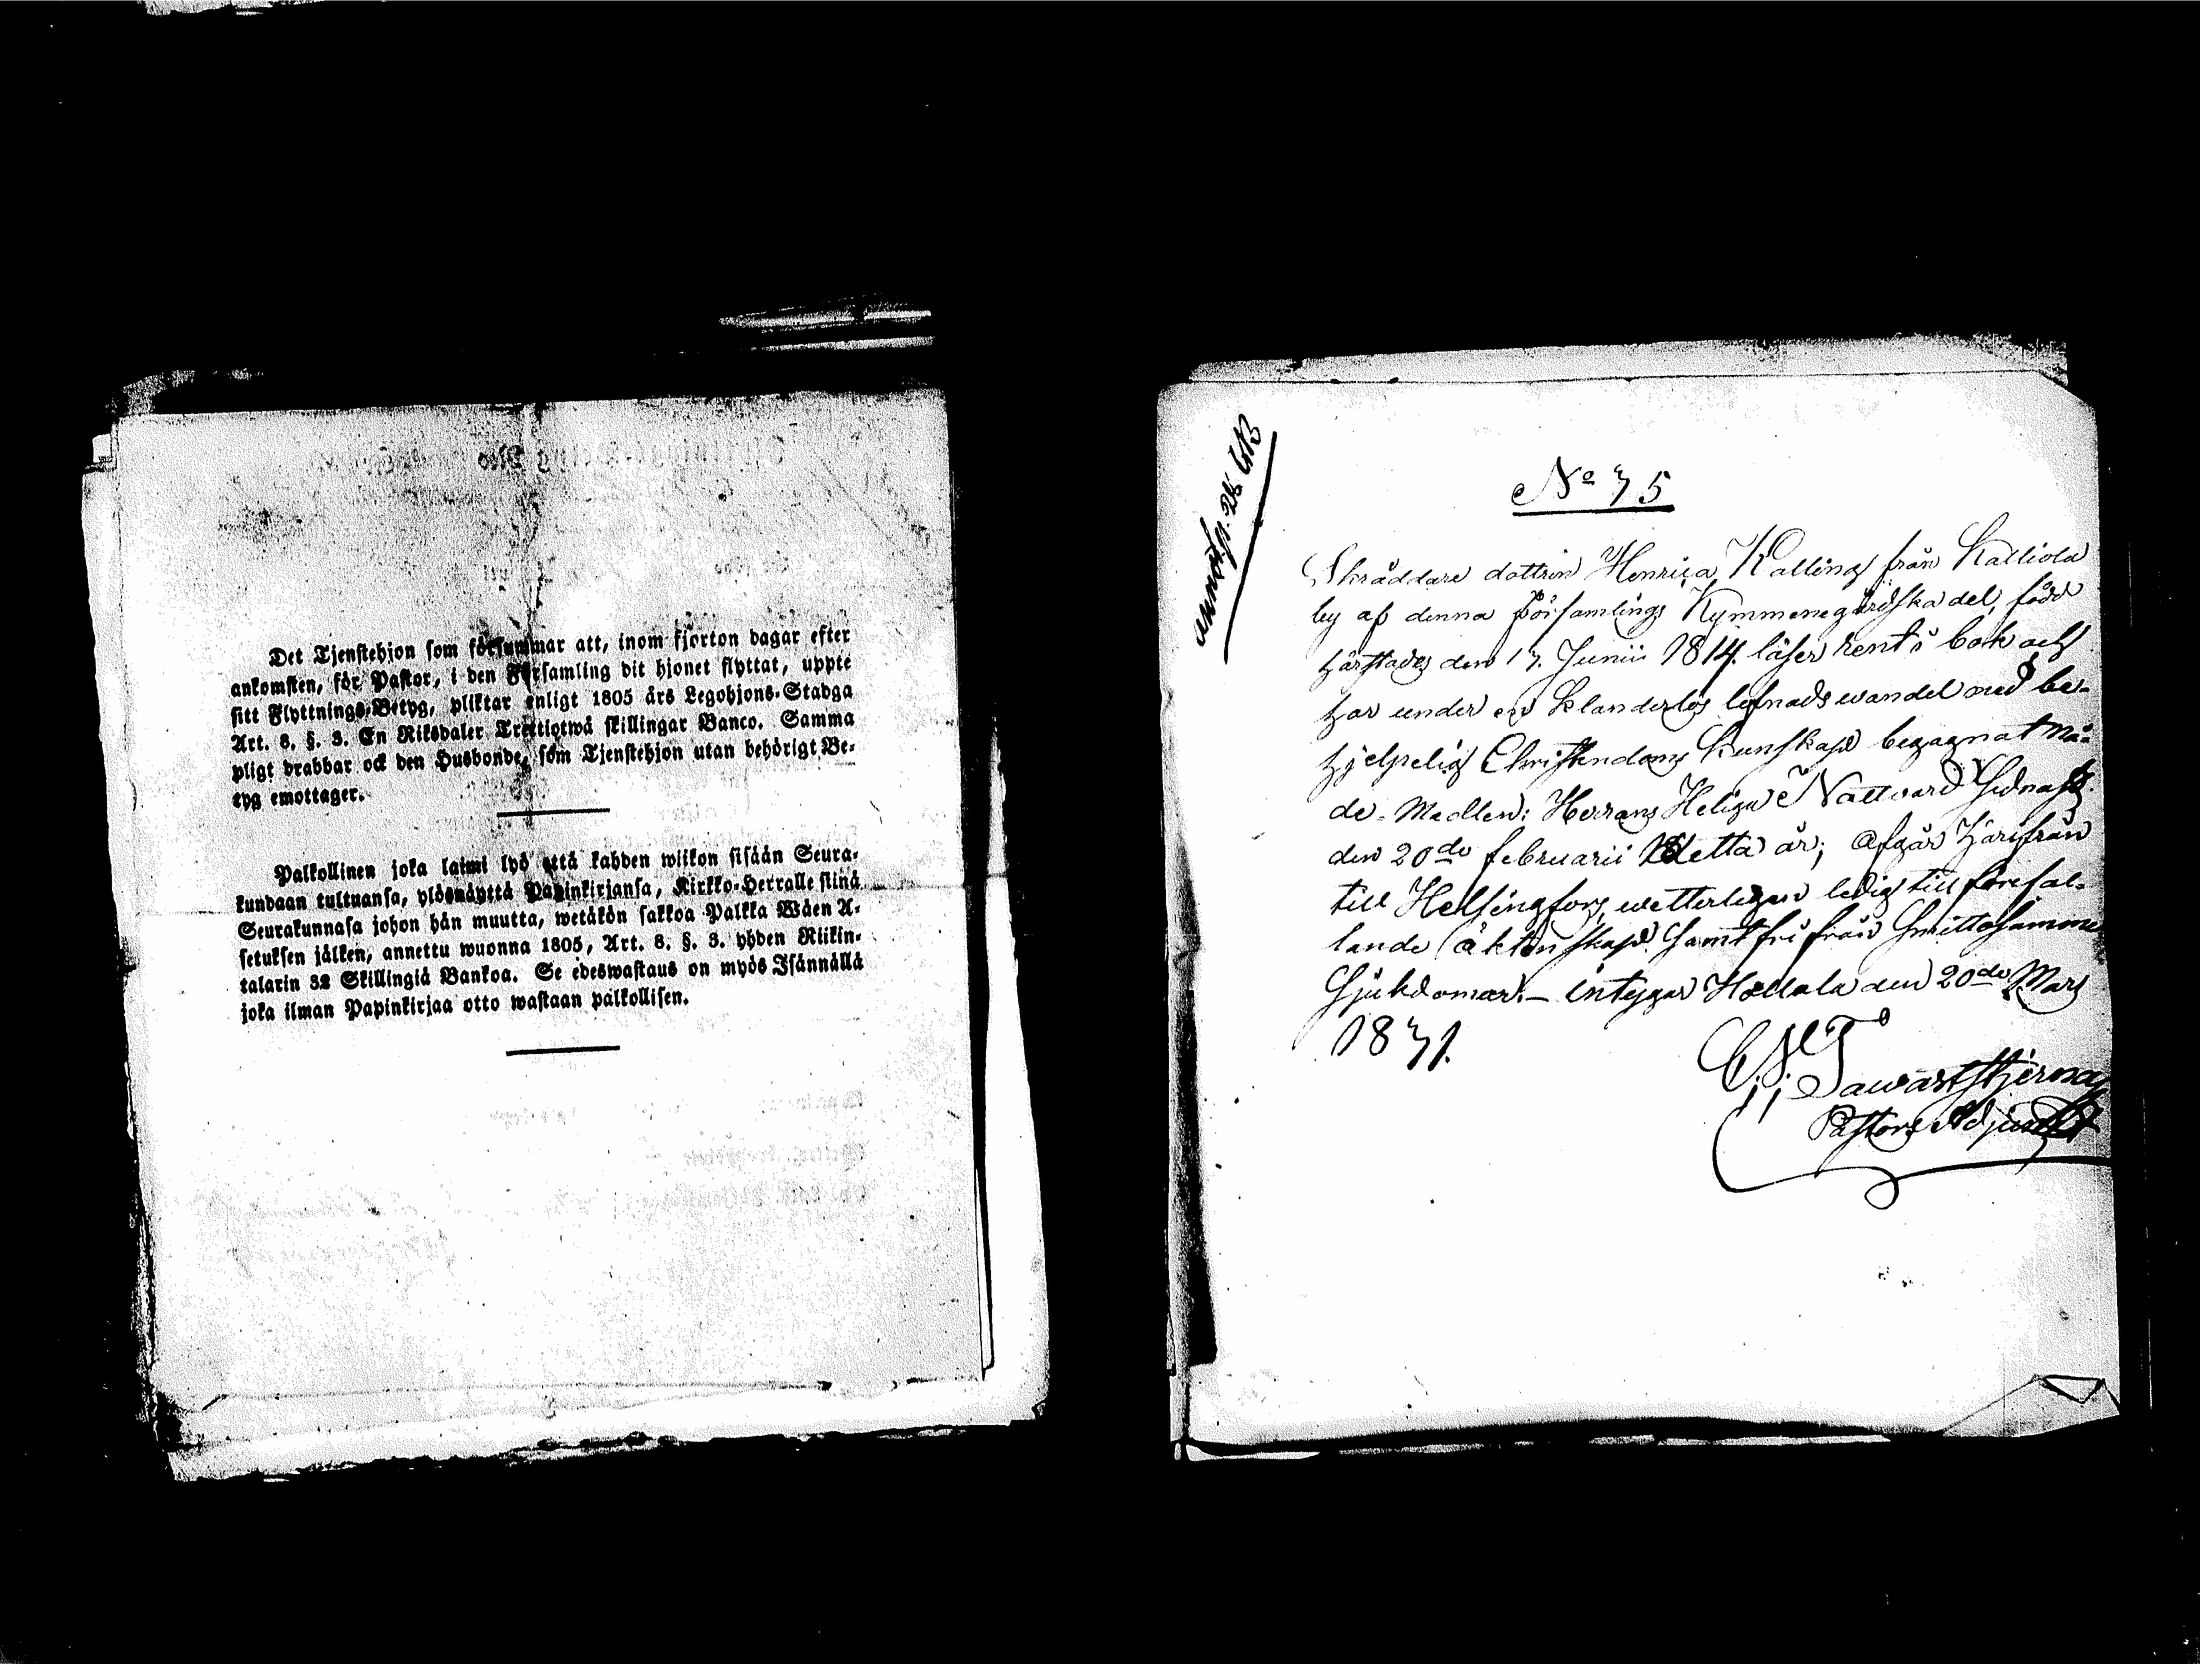 Det Tjenstehjon som försummar att, inom fjorton dagar efter
ankomsten, för Pastor, i den Församling dit hjonet flyttat, uppte
sitt Flyttnings-Betyg, pliktar enligt 1805 års Legohjons-Stadga
Art. 8. §. 3. En Riksdaler Trettiotwå skillingar Banco. Samma
pligt drabbar ock den Husbonde, som Tjenstehjon utan behörigt Be-
tyg emottager.
Palkollinen joka laimi lyö että kahden wiikon sisään Seura-
kundaan tultuansa, ylösnäyttä Papinkirjansa, Kirkko-Herralle siinä
Seurakunnasa johon hän muutta, wetäkön sakkoa Palkka Wäen A-
setuksen jälken, annettu wuonna 1805, Art. 8. §. 3. yhden Riikin-
talarin 32 Skillingiä Bankoa. Se edeswastaus on myös Isännällä
joka ilman Papinkirjaa otto wastaan palkollisen.
No 75
Skräddare dottren Henrica Kalling från Kalliola
by af denna Församlings Kymmenegårdska del, född
härstades den 17. Junii 1814. läser rent i bok och
har under en Klanderlös lefnads wandel med be-
hjelpelig Christendoms Kunskap begagnat Nå-
de-Medlen: Herrans Heliga Nattvard sidnast
den 20de februarii detta år; Afgår härifrån
till Helsingfors, wetterligen ledig till förefal-
lande äktenskap samt fri från smittosamme
Sjukdomar. - intygar Hollola den 20de Mars
1831.
Tawaststjerna
Pastors Adjunct